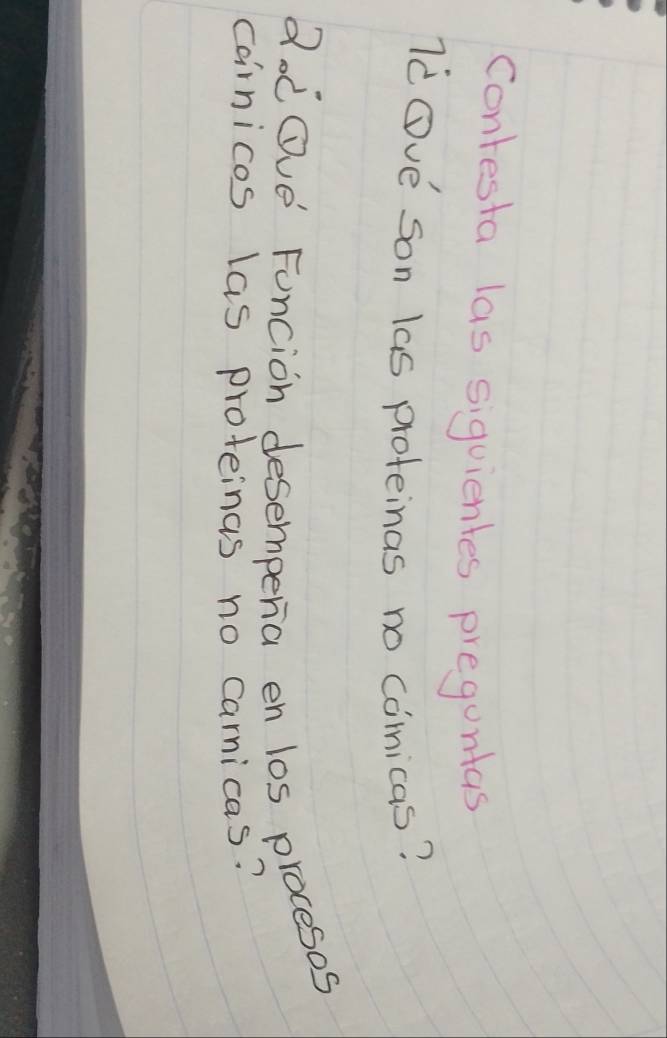 Contesta las siguientes preguntas
1¿Qué son las proteinas no cárnicas?
2.¿Qué Función desempeña en los procesos
cárnicos las proteinas no carnicas?